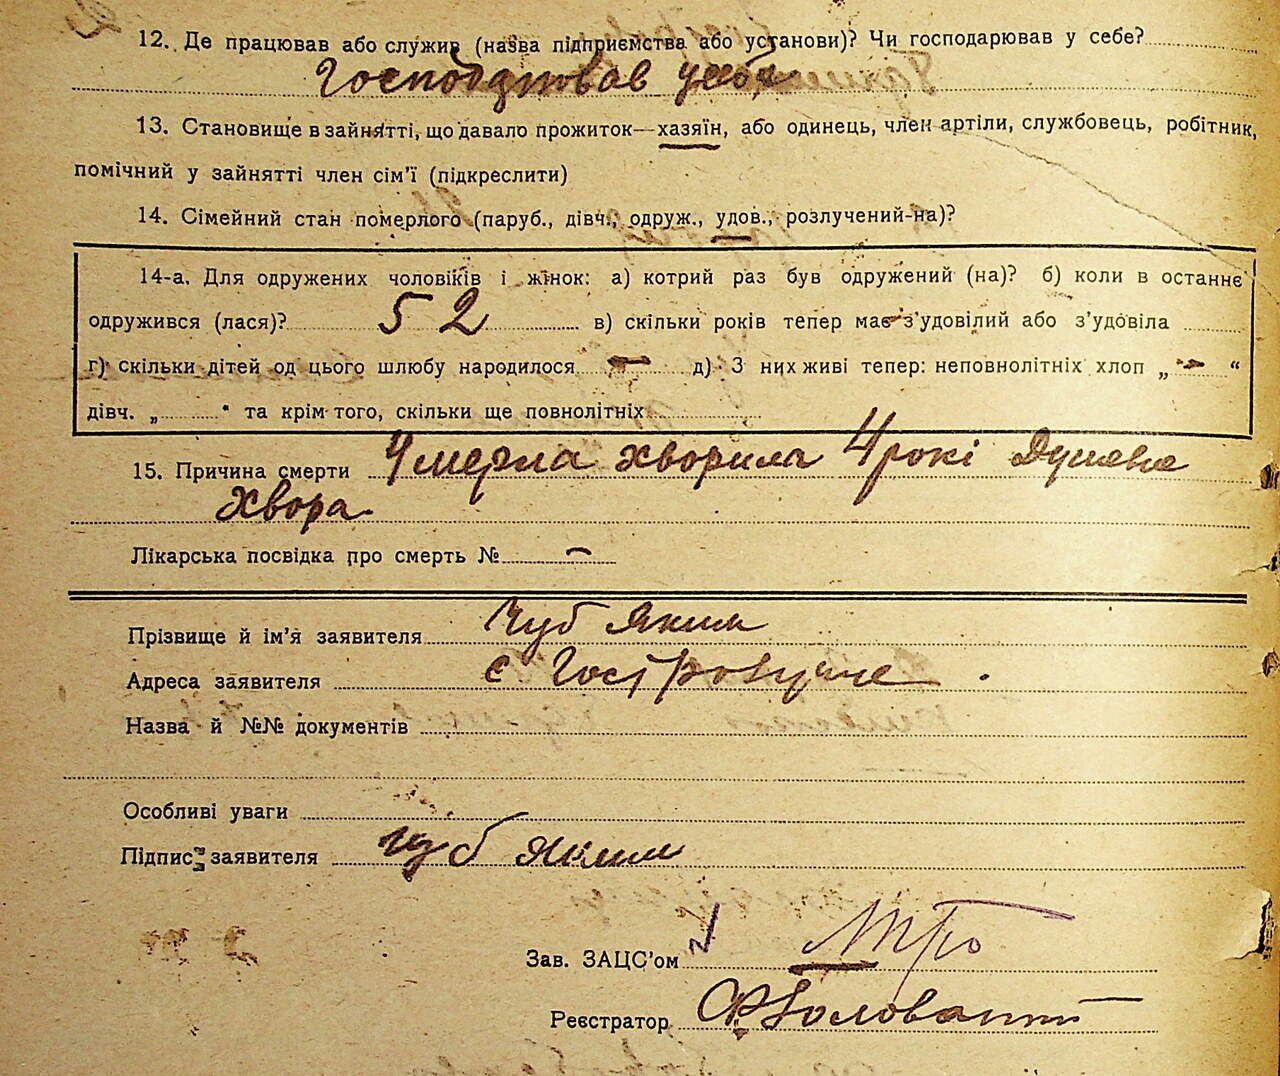 12. Де працював або служив (назва підприємства або установи)? Чи господарював у себе?
Господарював у себе
13. Становище в зайнятті, що давало прожиток—хазяїн, або одинець, член артіли, службовець, робітник,
помічний у зайнятті член сім'ї (підкреслити)
14. Сімейний стан померлого (паруб., дівч., одруж., удов., розлучений-на)?
14-а. Для одружених чоловіків і жінок: а) котрий раз був одружений (на)? б) коли в останнє
одружився (лася)? 52 в) скільки років тепер має з'удовілий або з'удовіла
г) скільки дітей од цього шлюбу народилося — д) З них живі тепер: неповнолітніх хлоп „ — “
дівч. „ “ та крім того, скільки ще повнолітніх
15. Причина смерти Умерла хворила 4 рокі Душевно
Хвора.
Лікарська посвідка про смерть № —
Прізвище й ім'я заявителя Чуб Яким
Адреса заявителя с Гостролуччє
Назва й №№ документів
Особливі уваги
Підпис заявителя Чуб Яким
Зав. ЗАЦС'ом
Реєстратор